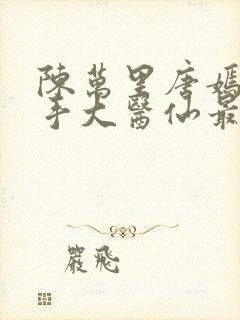 陳萬里唐嫣
手大醫仙最
嚴飛